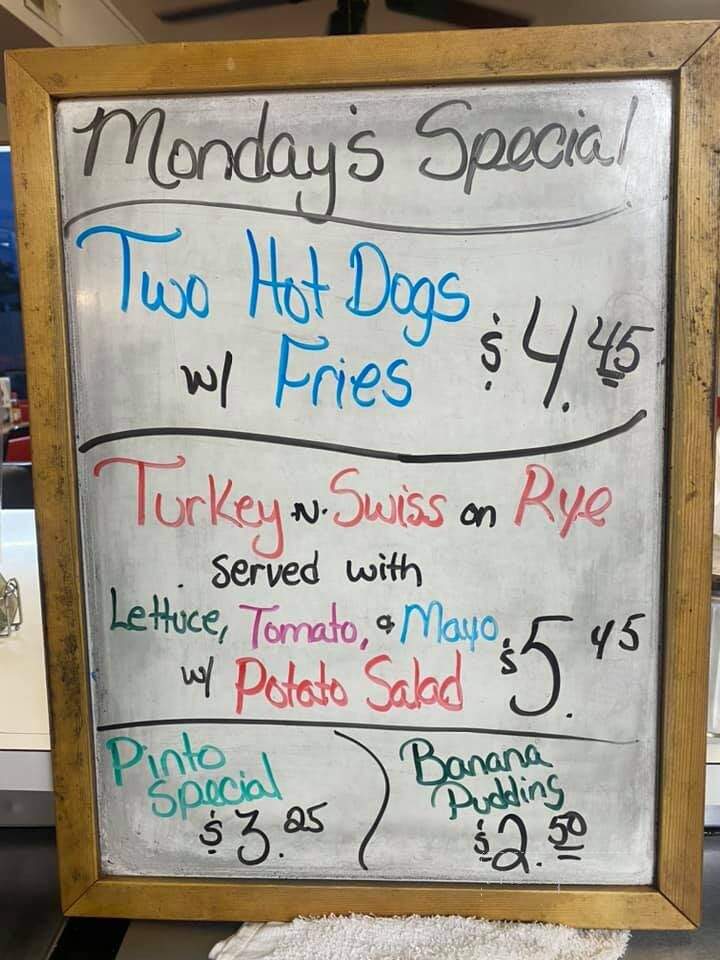 Monday's Special
Two Hot Dogs
w/ Fries $4.45
Turkey -N- Swiss on Rye
Served with
Lettuce, Tomato, & Mayo
w/ Potato Salad $5.45
Pinto
Special
$3.25
Banana
Pudding
$2.50